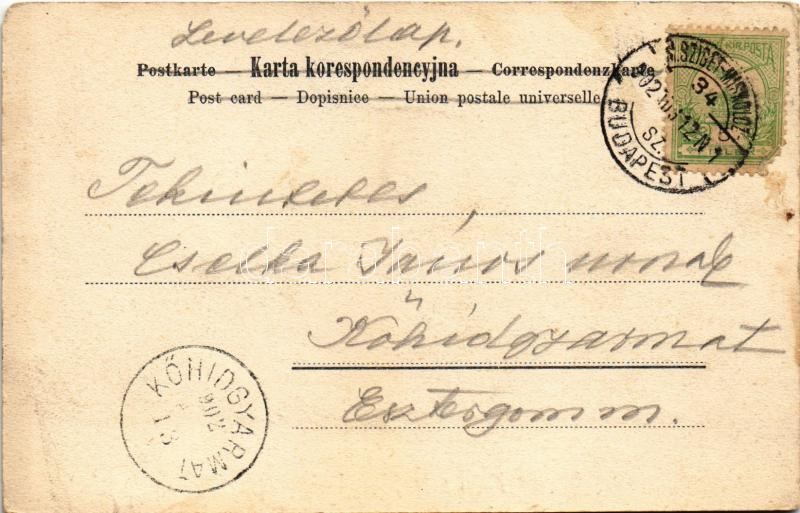 Levelezőlap.
Postkarte — Karta korespondencyjna — Correspondenzkarte
Post card — Dopisnice — Union postale universelle
KIR. POSTA
M.SZIGET-MISKOLCZ
34
SZ.
BUDAPEST
Tekintetes
Cselka János urnak
Kőhidgyarmat
Esztergom m.
KŐHIDGYARMAT
902
darabanth